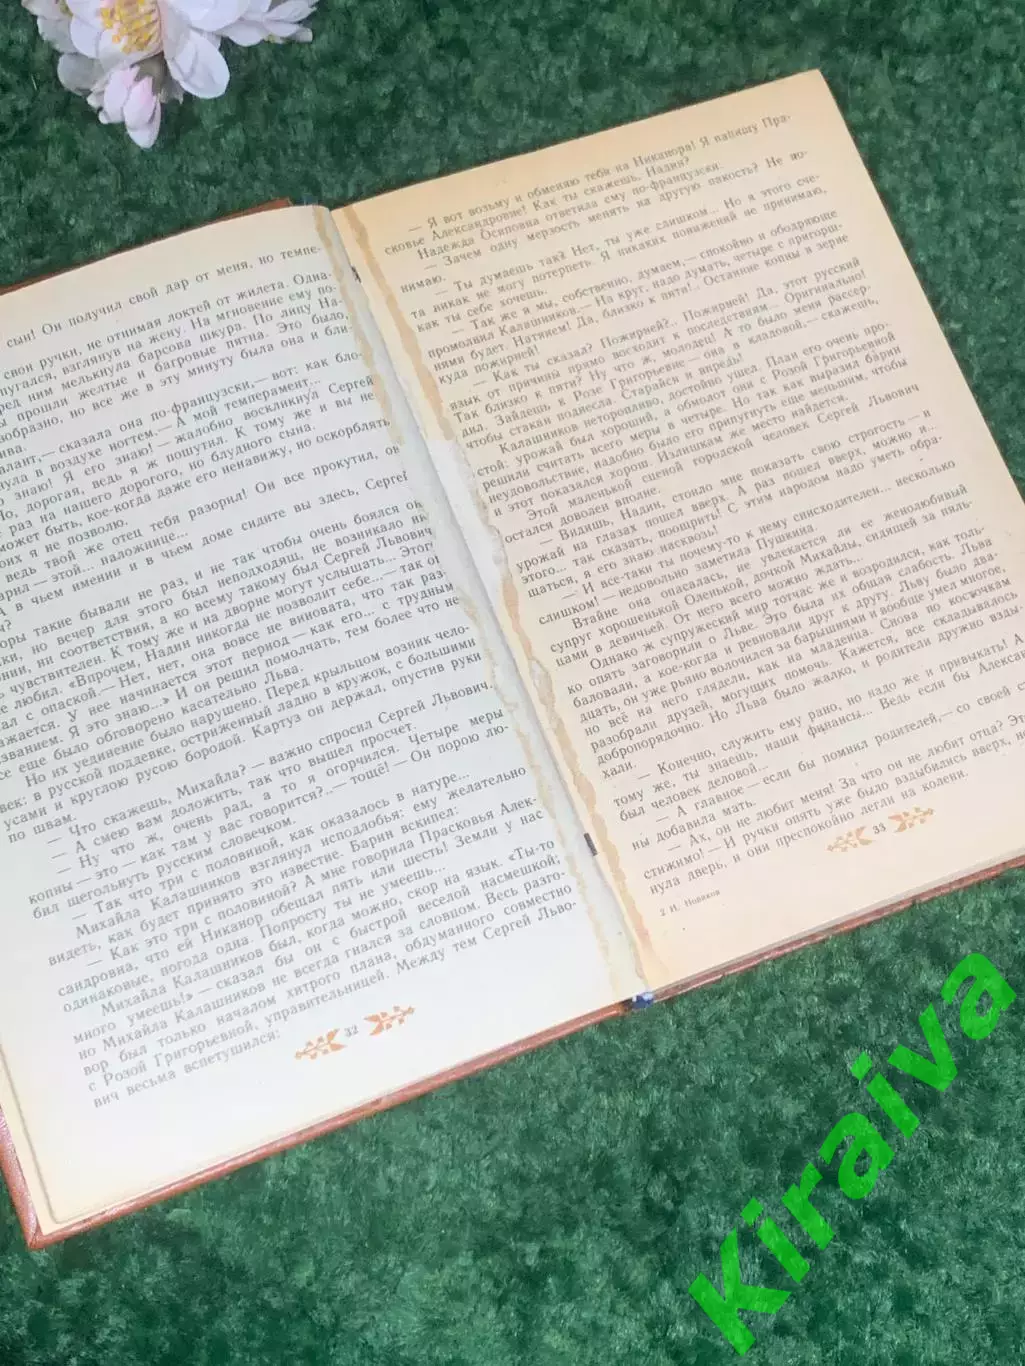 сын! Он получил свой дар от меня, но темпе-
свои ручки, не отнимая локтей от жилета. Одна-
пугался, взглянув на жену. На мгновение ему по-
ред ним мелькнула барсова шкура. По лицу На-
прошли желтые и багровые пятна. Это было,
образно, но все же в эту минуту была она и бли-
— сказала она по-французски,— вот: как бло-
нула в воздухе ногтем.— А мой температмент...
знаю! Я его знаю! — жалобно воскликнул Сергей
дорогая, ведь я ж пошутил. К тому же и вы не
раз на нашего дорогого, но блудного сына.
может быть, кое-когда даже его ненавижу, но оскорблять
я не позволю.
ведь твой же отец тебя разорил! Он все прокутил, он
этой... наложнице...
А в чьем имении и в чьем доме сидите вы здесь, Сергей
такие бывали не раз, и не так чтобы очень боялся он
но вечер для этого был неподходящ, не возникало ни
ни соответствия, а ко всему такому был Сергей Львович
чувствителен. К тому же и на дворне могут услышать... Этого
любил. «Впрочем, Надин никогда не позволит себе...— так он
с опаской.— Нет, нет, она вовсе не виновата, что так раз-
У нее начинается этот период — как его... с трудным
званием. Я это знаю...» И он решил помолчать, тем более что не
все еще было обговорено касательно Льва.
Но их уединение было нарушено. Перед крыльцом возник чело-
век: в русской поддевке, остриженный ладно в кружок, с большими
усами и круглою русою бородой. Картуз он держал, опустив руки
по швам.
— Что скажешь, Михайла? — важно спросил Сергей Львович.
— А смею вам доложить, так что вышел просчет. Четыре меры
— Ну что ж, очень рад, а то я огорчился.
копны — это — как там у вас говорится?..— тощё! — Он порою лю-
бил щегольнуть русским словечком.
— Так что три с половиной, как оказалось в натуре...
Михайла Калашников взглянул исподлобья: ему желательно
видеть, как будет принято это известие. Барин вскипел:
— Как это три с половиной? А мне говорила Прасковья Алек-
сандровна, что ей Никанор обещал пять или шесть! Земли у нас
одинаковые, погода одна. Попросту ты не умеешь...
Михайла Калашников был, когда можно, скор на язык. «Ты-то
много умеешь!» — сказал бы он с быстрой веселой насмешкой;
но Михайла Калашников не всегда гнался за словцом. Весь разго-
вор был только началом хитрого плана, обдуманного совместно
с Розой Григорьевной, управительницей. Между тем Сергей Льво-
вич весьма вспетушился:
32
— Я вот возьму и обменяю тебя на Никанора! Я напишу Пра-
сковье Александровне! Как ты скажешь, Надин?
Надежда Осиповна ответила ему по-французски:
— Зачем одну мерзость менять на другую пакость? Не по-
нимаю.
— Ты думаешь так? Нет, ты уже слишком... Но я этого сче-
та никак не могу потерпеть. Я никаких понижений не принимаю,
как ты себе хочешь.
— Так же и мы, собственно, думаем,— спокойно и ободряюще
промолвил Калашников.— На круг, надо думать, четыре с пригорш-
нями будет. Натянем! Да, близко к пяти!.. Останние копны в зерне
куда пожирней!
— Как ты сказал? Пожирней?.. Пожирней! Да, этот русский
язык от причины прямо восходит к последствиям... Оригинально!
Так близко к пяти? Ну что ж, молодец! А то было меня рассер-
дил. Зайдешь к Розе Григорьевне — она в кладовой,— скажешь,
чтобы стакан поднесла. Старайся и впредь!
Калашников неторопливо, достойно ушел. План его очень про-
стой: урожай был хороший, а обмолот они с Розой Григорьевной
решили считать всего меры в четыре. Но так как выразил барин
неудовольствие, надобно было его припугнуть еще меньшим, чтобы
и этот показался хорош. Излишкам же место найдется.
Этой маленькой сценой городской человек Сергей Львович
остался доволен вполне.
— Видишь, Надин, стоило мне показать свою строгость — и
урожай на глазах пошел вверх. А раз пошел вверх, можно и...
этого... так сказать, поощрить! С этим народом надо уметь обра-
щаться, я его знаю насквозь!
— И все-таки ты почему-то к нему снисходителен... несколько
слишком! — недовольно заметила Пушкина.
Втайне она опасалась, не увлекается ли ее женолюбивый
супруг хорошенькой Оленькой, дочкой Михайлы, сидящей за пяль-
цами в девичьей. От него всего можно ждать...
Однако ж супружеский мир тотчас же и возродился, как толь-
ко опять заговорили о Льве. Это была их общая слабость. Льва
баловали, а кое-когда и ревновали друг к другу. Льву было два-
дцать, он уже рьяно волочился за барышнями и вообще умел многое,
но всё на него глядели, как на младенца. Снова по косточкам
разобрали друзей, могущих помочь. Кажется, все складывалось
добропорядочно. Но Льва было жалко, и родители дружно взды-
хали.
— Конечно, служить ему рано, но надо же и привыкать! А
тому же, ты знаешь, наши финансы... Ведь если бы Алексан
был человек деловой...
— А главное — если бы помнил родителей,— со своей с
ны добавила мать.
— Ах, он не любит меня! За что он не любит отца? Э
стижимо! — И ручки опять уже было вздыбились вверх, н
нула дверь, и они преспокойно легли на колени.
33
2 И. Новиков
Kiraiva